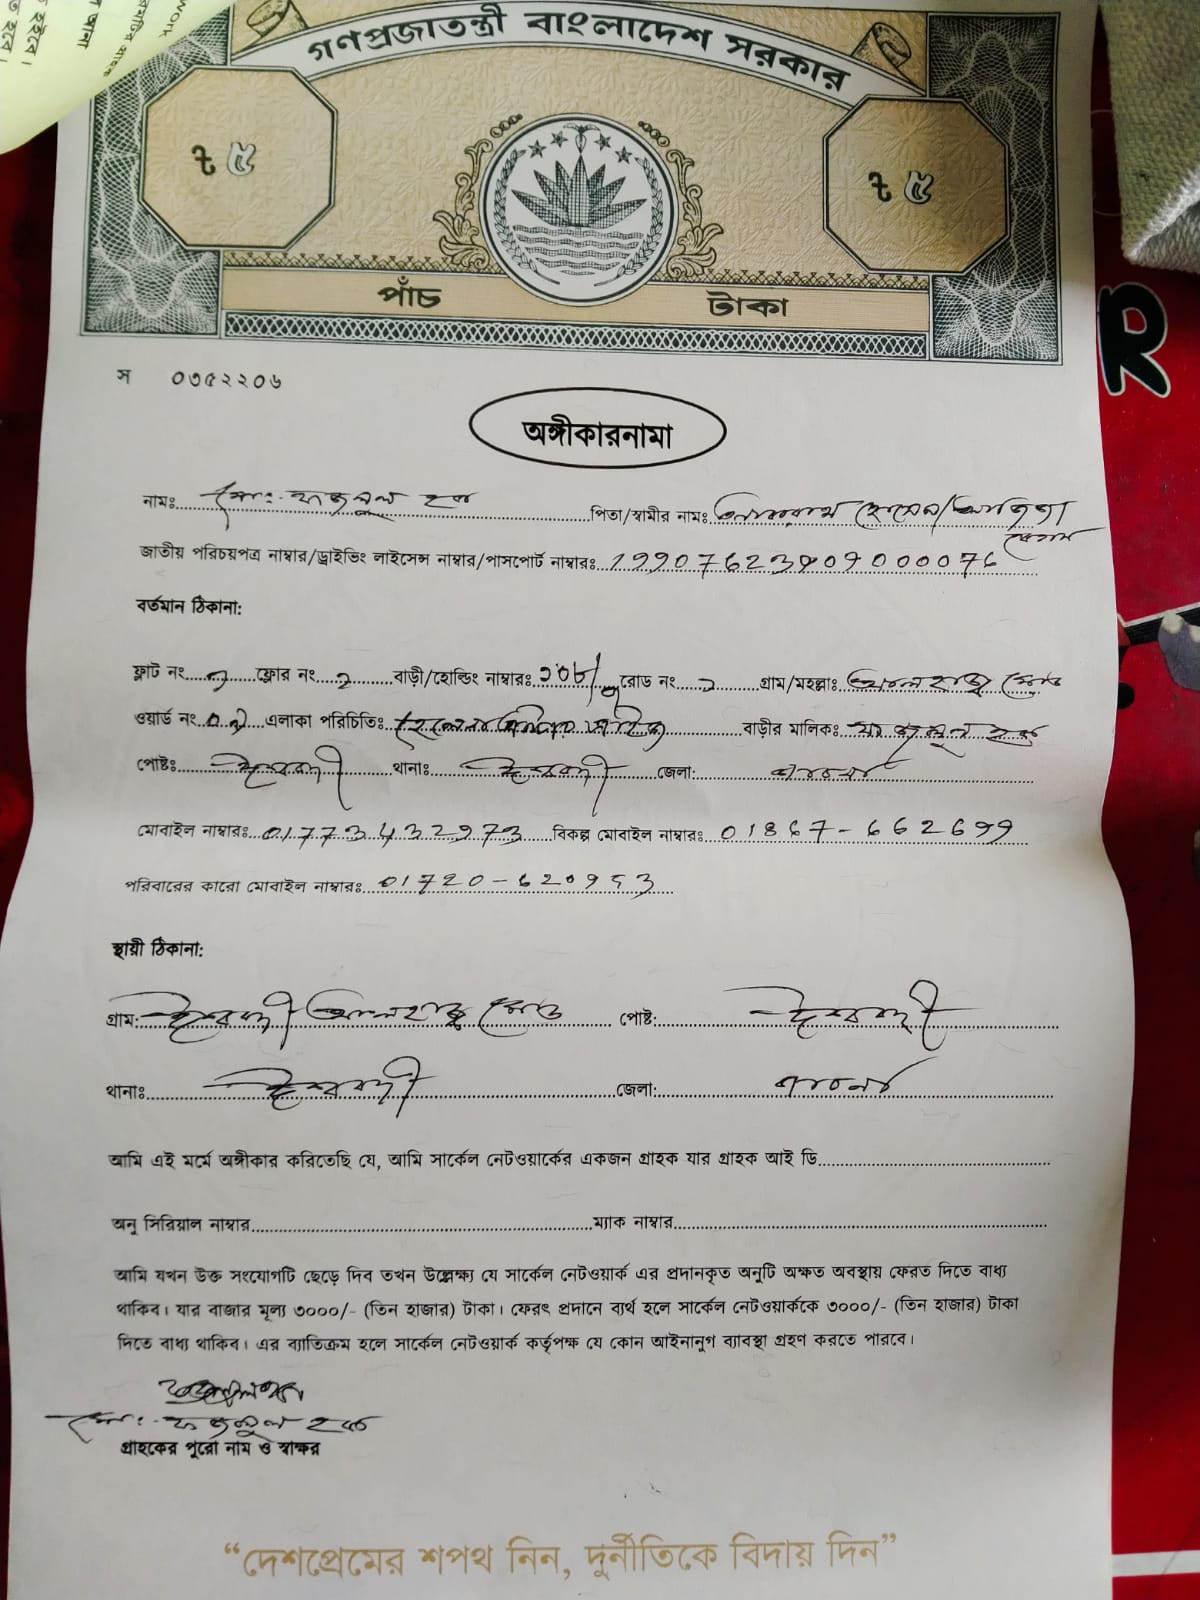 গণপ্রজাতন্ত্রী বাংলাদেশ সরকার
৳ ৫
৳ ৫
পাঁচ টাকা
স ০৩৫২২০৬
অঙ্গীকারনামা
নামঃ মো: ফজলুল হক পিতা/স্বামীর নামঃ হোসেন/
জাতীয় পরিচয়পত্র নাম্বার/ড্রাইভিং লাইসেন্স নাম্বার/পাসপোর্ট নাম্বারঃ
বর্তমান ঠিকানা:
ফ্লাট নং ফ্লোর নং ২ বাড়ী/হোল্ডিং নাম্বারঃ রোড নং গ্রাম/মহল্লাঃ আলহাজ্ব মোড়
ওয়ার্ড নং এলাকা পরিচিতিঃ বাড়ীর মালিকঃ ফজলুল হক
পোষ্টঃ ঈশ্বরদী থানাঃ ঈশ্বরদী জেলা: পাবনা
মোবাইল নাম্বারঃ 01773432973 বিকল্প মোবাইল নাম্বারঃ 01867-662699
পরিবারের কারো মোবাইল নাম্বারঃ
স্থায়ী ঠিকানা:
গ্রাম: ঈশ্বরদী আলহাজ্ব মোড় পোষ্ট: ঈশ্বরদী
থানাঃ ঈশ্বরদী জেলা: পাবনা
আমি এই মর্মে অঙ্গীকার করিতেছি যে, আমি সার্কেল নেটওয়ার্কের একজন গ্রাহক যার গ্রাহক আই ডি
অনু সিরিয়াল নাম্বার ম্যাক নাম্বার
আমি যখন উক্ত সংযোগটি ছেড়ে দিব তখন উল্লেক্ষ্য যে সার্কেল নেটওয়ার্ক এর প্রদানকৃত অনুটি অক্ষত অবস্থায় ফেরত দিতে বাধ্য
থাকিব। যার বাজার মূল্য ৩০০০/- (তিন হাজার) টাকা। ফেরৎ প্রদানে ব্যর্থ হলে সার্কেল নেটওয়ার্ককে ৩০০০/- (তিন হাজার) টাকা
দিতে বাধ্য থাকিব। এর ব্যাতিক্রম হলে সার্কেল নেটওয়ার্ক কর্তৃপক্ষ যে কোন আইনানুগ ব্যাবস্থা গ্রহণ করতে পারবে।
মো: ফজলুল হক
গ্রাহকের পুরো নাম ও স্বাক্ষর
“দেশপ্রেমের শপথ নিন, দুর্নীতিকে বিদায় দিন”